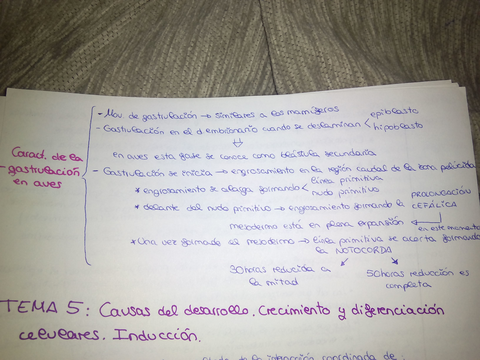 - Mov. de gastrulación → similares a los mamíferos
- Gastrulación en el d. embrionario cuando se deslaminan < epiblasto
hipoblasto
en aves esta fase se conoce como blástula secundaria
Caract. de la
gastrulación
en aves
- Gastrulación se inicia → engrosamiento en la región caudal de la zona pelúcida
* engrosamiento se alarga formando < línea primitiva
nudo primitivo
* delante del nudo primitivo → engrosamiento formando la PREACUACIÓN
CEFÁLICA
mesodermo está en plena expansión ← en este momento
* Una vez formado el mesodermo → línea primitiva se acorta formando
la NOTOCORDA
30 horas reducida a
la mitad
50 horas reducción es
completa
TEMA 5: Causas del desarrollo. Crecimiento y diferenciación
celulares. Inducción.
de la interacción coordinada de